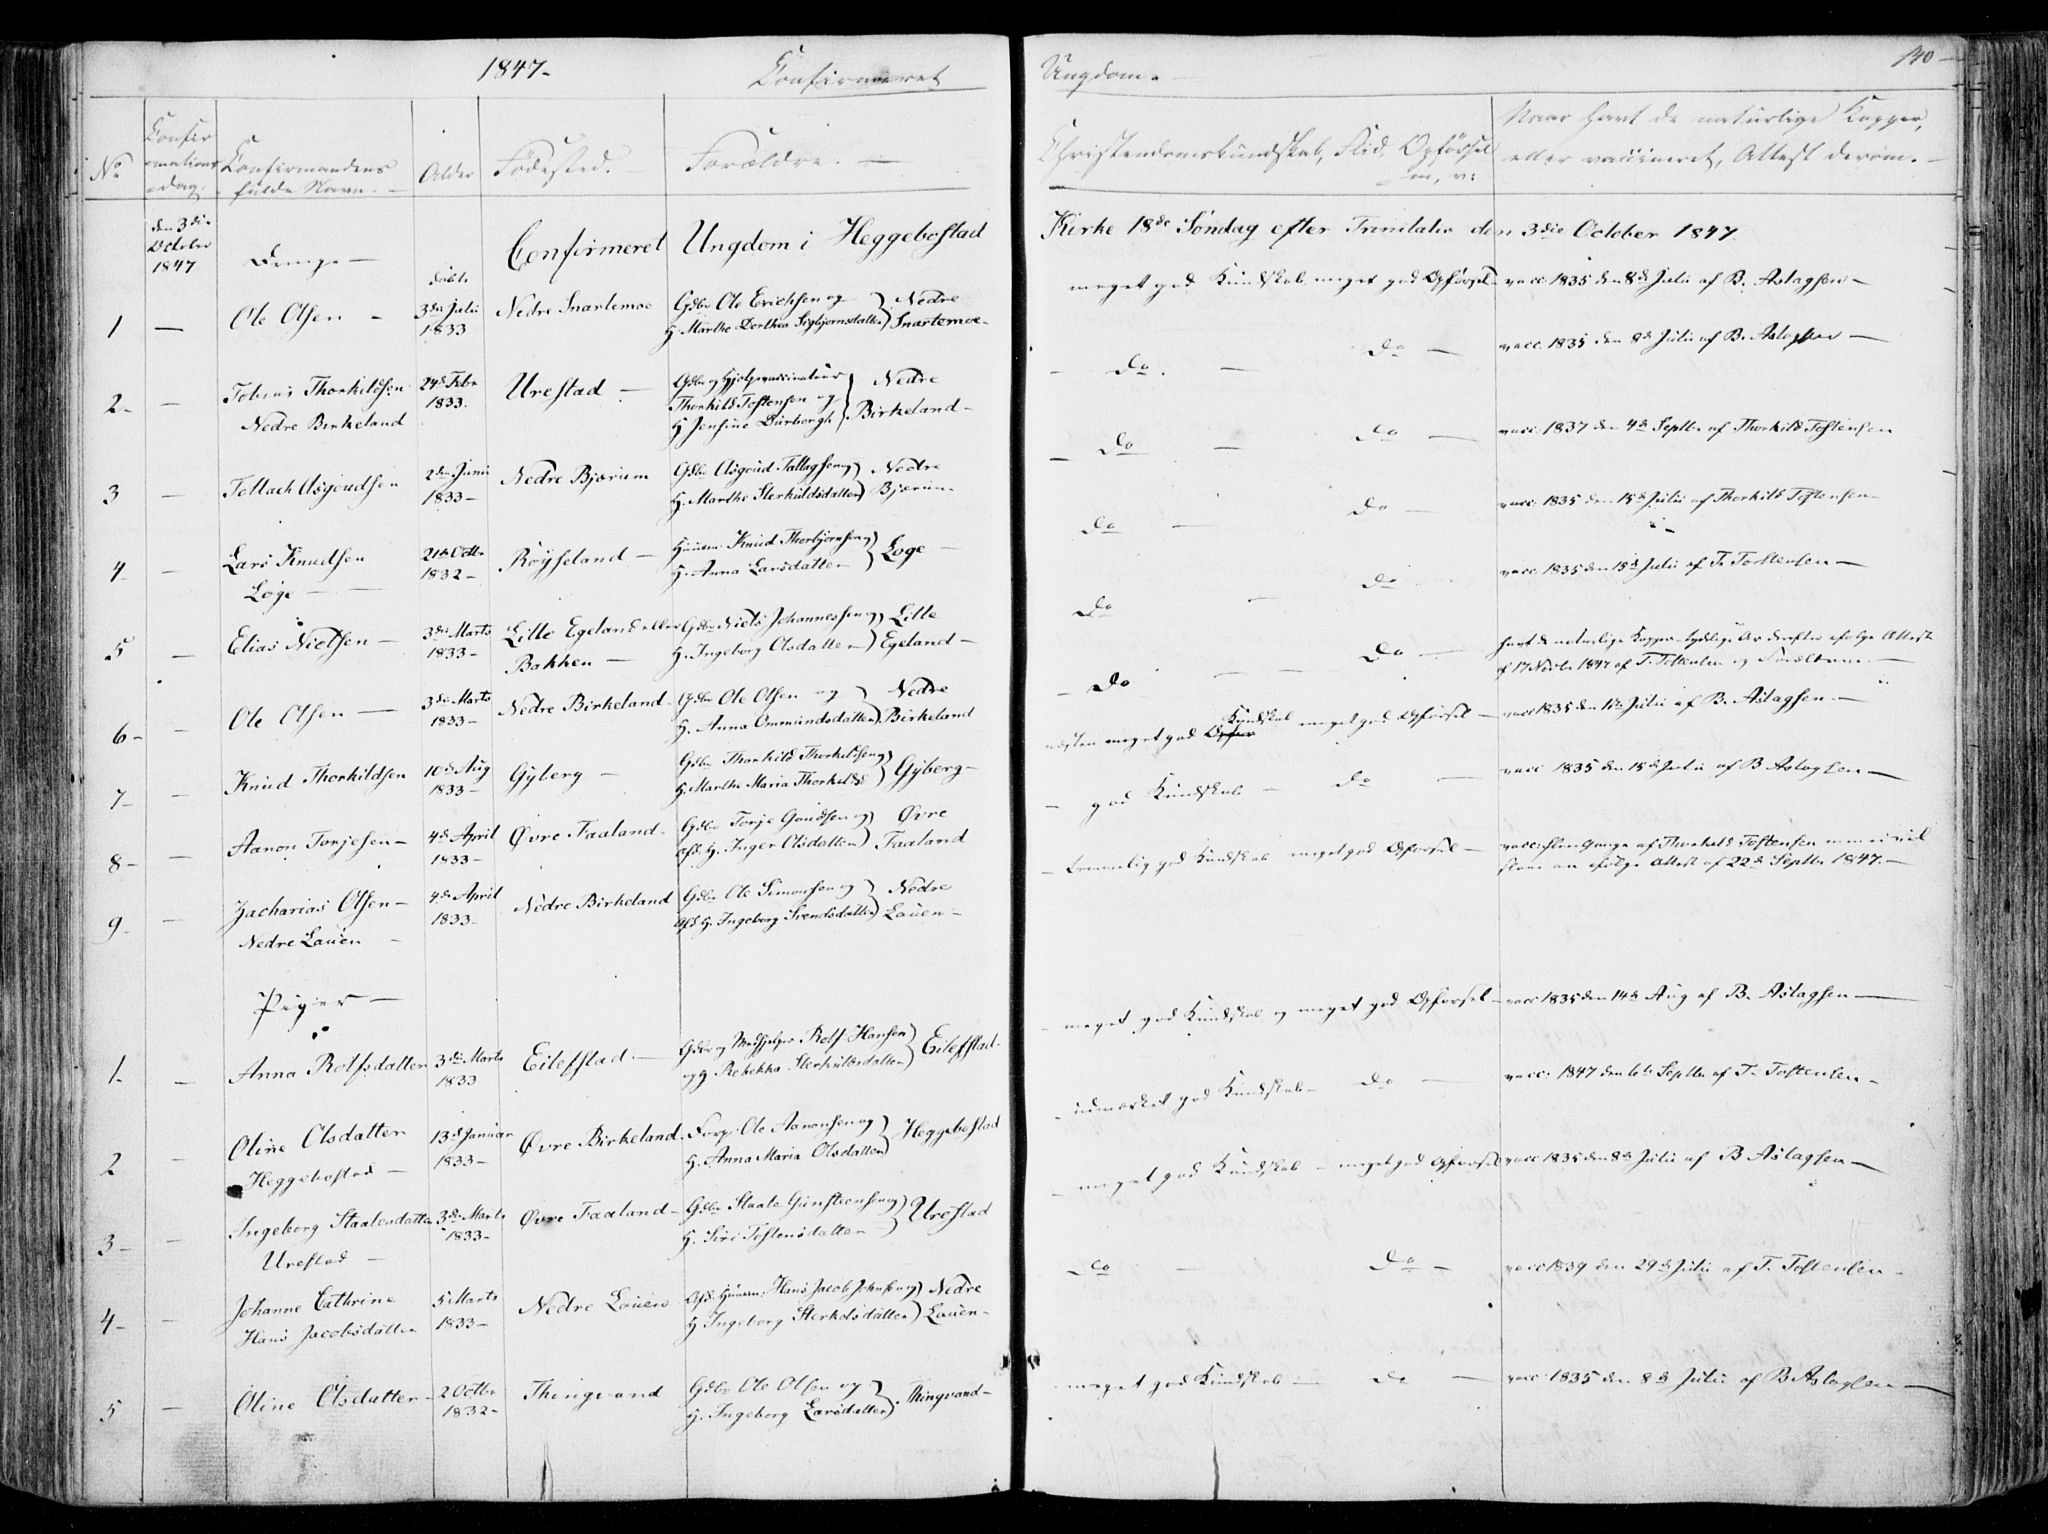 1847.
Confirmeret
Ungdom.
140
No
Confirmations dag.
Confirmandens fulde Navn.
Alder
Födested.
Forældre.
Christendomskundskab, Flid, Opförsel m, v:
Naar havt de naturlige Kopper, eller vaccineret, Attest derom.
den 3die October 1847
Drenge
döbt
Confirmeret Ungdom i Heggebostad Kirke 18de Søndag efter Trinitatis den 3die October 1847.
1 — Ole Olsen —
3die Julii 1833
Nedre Snartemoe
Gdbr Ole Erichsen og
H. Marthe Dorthea Sigbjørnsdatter
Nedre Snartemoe
meget god Kundskab meget god Opførsel
vacc: 1835 den 8de Julii af B. Aslagsen —
2 — Tobias Thorkildsen
Nedre Birkeland
24de Febr 1833.
Urestad —
Gdbr og Hjelpevaccinateur
Thorkild Tostensen og
H Jensine Dürborgh
Nedre Birkeland
Do — Do —
vacc. 1835 den 8de Julii af B. Aslagsen —
3 — Tollach Asgoudsen
2den Junii 1833
Nedre Bjærum
Gdbr Asgoud Tallagsen og
H. Marthe Sterkuldsdatter
Nedre Bjærum
Do — Do —
vacc: 1837 den 4de Septbr af Thorkild Tostensen
4 — Lars Knudsen
Løge
21de Octbr 1832
Røyseland —
Huusm: Knud Thorbjørnsen og
H. Anna Larsdatter
Løge
Do — Do —
vacc: 1835 den 15de Julii af Thorkild Tostensen
5 — Elias Nielsen —
3die Marts 1833
Lille Egeland eller Bakken —
Gdbr Niels Johannessen og
H. Ingeborg Olsdatter
Lille Egeland —
Do — Do
vacc. 1835 den 15de Julii af T. Tostensen —
6 — Ole Olsen —
3die Marts 1833
Nedre Birkeland
Gdbr Ole Olsen og
H. Anna Ommundsdatter
Nedre Birkeland
Do — Do —
havt de naturlige Kopper ifølge Attest
af 17 Novbr 1847 af T. Tostensen og Forældrene. —
7 — Knud Thorkildsen
10de Aug 1833
Gyberg —
Gdbr Thorkild Thorkildsen og
H. Marthe Maria Thorkildsd
Gyberg —
næsten meget god Kundskab meget god Opførsel —
vacc 1835 den 15de Julii af B. Aslagsen —
8 — Aanon Torjesen —
4de April 1833
Øvre Faaland
Gdbr Torje Goudsen og
Afd. H. Inger Olsdatter
Øvre Faaland
god Kundskab — Do —
vacc 1835 den 15de Julii af B Aslagsen —
9 — Zacharias Olsen —
Nedre Lauen
4de April 1833
Nedre Birkeland
Gdbr Ole Simonsen og
Afd. H. Ingeborg Svendsdatter
Nedre Lauen —
temmelig god Kundskab meget god Opførsel —
vacc: flere Gange af Thorkild Tostensen
ifølge Attest af 22de Septbr 1847. —
Piger —
1 — Anna Rolfsdatter
3die Marts 1833
Eilefstad —
Gdbr og Medhjelper Rolf Hansen
og H Rebekka Sterkuldsdatter
Eilefstad.
meget god Kundskab og meget god Opførsel
vacc: 1835 den 14de Aug af B. Aslagsen —
2 — Oline Olsdatter
Heggebostad —
13de Januar 1833
Øvre Birkeland
Forp: Ole Aanonsen og
H. Anna Maria Olsdatter
Heggebostad
udmærket god Kundskab — Do —
vacc: 1847 den 6te Septbr af T. Tostensen
3 — Ingeborg Staalesdatter
Urestad —
3die Marts 1833
Øvre Faaland
Gdbr Staale Gunsteensen og
H. Siri Tostensdatter
Urestad
meget god Kundskab — meget god Opførsel
vacc 1835 den 8de Julii af B Aslagsen —
4 — Johanne Cathrine
Hans Jacobsdatter
5 Marts 1833
Nedre Lauen
Afd. Huusm: Hans Jacob Johnsen og
H Ingeborg Sterkelsdatter
Nedre Lauen —
Do — Do —
vacc 1839 den 29de Julii af T. Tostensen
5 — Oline Olsdatter
2 Octbr 1832
Thingvand
Gdbr Ole Olsen og
H. Ingeborg Larsdatter
Thingvand —
meget god Kundskab — do —
vacc: 1835 den 8de Julii af B Aslagsen —